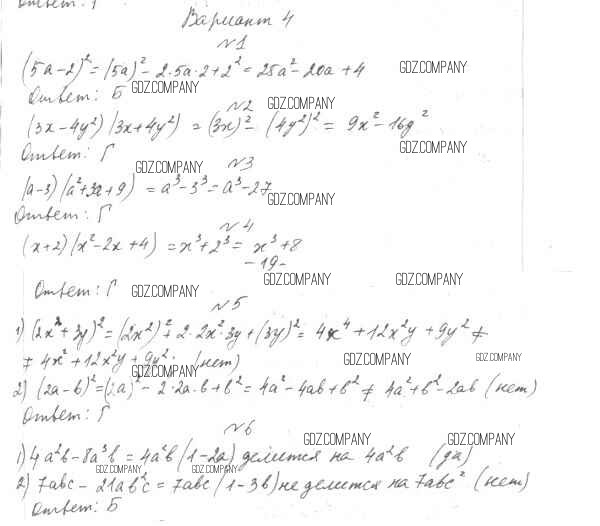 Ответ: Г
Вариант 4
№1
(5a-2)² = (5a)² - 2·5a·2 + 2² = 25a² - 20a + 4 GDZ.COMPANY
Ответ: Б GDZ.COMPANY
№2 GDZ.COMPANY
(3x-4y²)(3x+4y²) = (3x)² - (4y²)² = 9x² - 16y²
Ответ: Г GDZ.COMPANY
№3 GDZ.COMPANY
(a-3)(a²+3a+9) = a³-3³ = a³-27
Ответ: Г GDZ.COMPANY
№4
(x+2)(x²-2x+4) = x³+2³ = x³+8
-19-
Ответ: Г GDZ.COMPANY GDZ.COMPANY GDZ.COMPANY
№5
1) (2x²+3y)² = (2x²)²+2·2x²·3y+(3y)² = 4x⁴+12x²y+9y² ≠
≠ 4x²+12x²y+9y². (нет) GDZ.COMPANY GDZ.COMPANY GDZ.COMPANY
2) (2a-b)² = (2a)² - 2·2a·b + b² = 4a²-4ab+b² ≠ 4a²+b²-2ab (нет)
Ответ: Г
№6 GDZ.COMPANY GDZ.COMPANY
1) 4a²b-8a³b = 4a²b(1-2a) делится на 4a²b (да)
GDZ.COMPANY GDZ.COMPANY
2) 7abc - 21ab²c = 7abc(1-3b) не делится на 7abc² (нет)
Ответ: Б